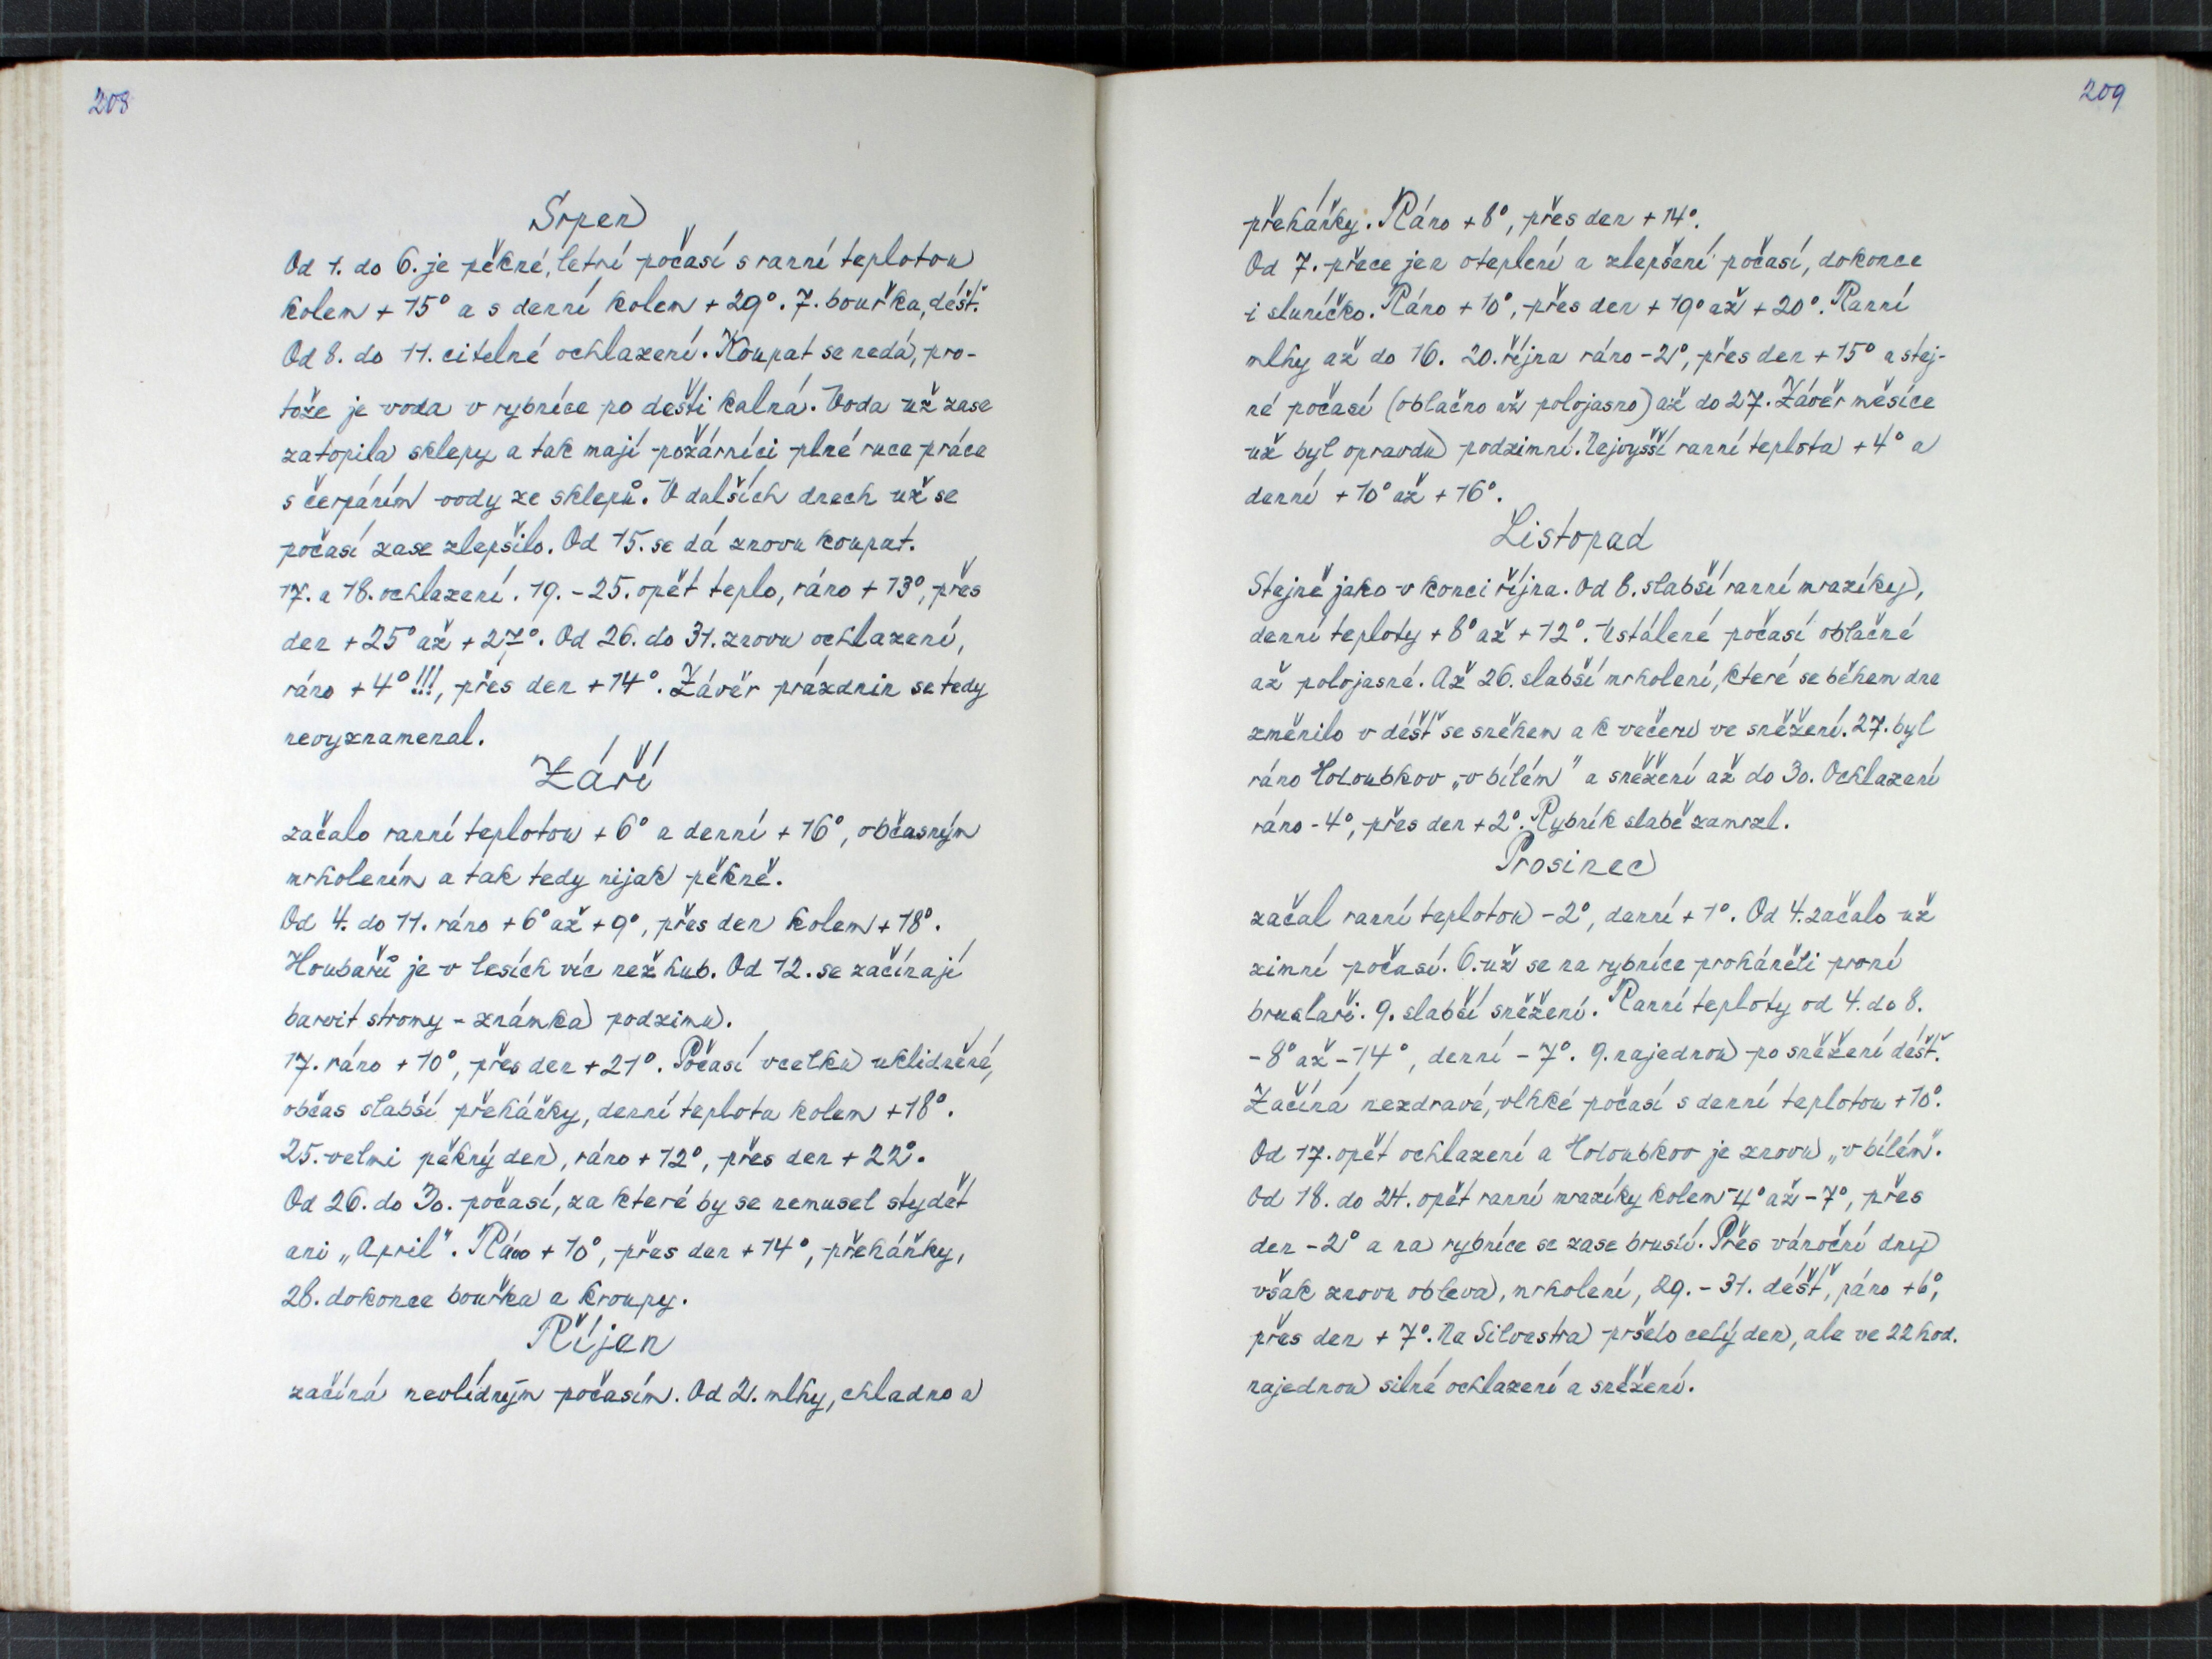 208
Srpen
Od 1. do 6. je pěkné, letní počasí s ranní teplotou
kolem + 15° a s denní kolem + 29°. 7. bouřka, déšť.
Od 8. do 11. citelné ochlazení. Koupat se nedá, pro-
tože je voda v rybníce po dešti kalná. Voda už zase
zatopila sklepy a tak mají požárníci plné ruce práce
s čerpáním vody ze sklepů. V dalších dnech už se
počasí zase zlepšilo. Od 15. se dá znovu koupat.
17. a 18. ochlazení. 19. - 25. opět teplo, ráno + 13°, přes
den + 25° až + 27°. Od 26. do 31. znovu ochlazení,
ráno + 4° !!!, přes den + 14°. Závěr prázdnin se tedy
nevyznamenal.
Září
začalo ranní teplotou + 6° a denní + 16°, občasným
mrholením a tak tedy nijak pěkně.
Od 4. do 11. ráno + 6° až + 9°, přes den kolem + 18°.
Houbařů je v lesích víc než hub. Od 12. se začínají
barvit stromy - známka podzimu.
17. ráno + 10°, přes den + 21°. Počasí vcelku uklidněné,
občas slabší přeháňky, denní teplota kolem + 18°.
25. velmi pěkný den, ráno + 12°, přes den + 22°.
Od 26. do 30. počasí, za které by se nemusel stydět
ani „April". Ráno + 10°, přes den + 14°, přeháňky,
28. dokonce bouřka a kroupy.
Říjen
začíná nevlídným počasím. Od 2. mlhy, chladno a
209
přeháňky. Ráno + 8°, přes den + 14°.
Od 7. přece jen oteplení a zlepšení počasí, dokonce
i sluníčko. Ráno + 10°, přes den + 19° až + 20°. Ranní
mlhy až do 16. 20. října ráno - 2°, přes den + 15° a stej-
né počasí (oblačno až polojasno) až do 27. Závěr měsíce
už byl opravdu podzimní. Nejvyšší ranní teplota + 4° a
denní + 10° až + 16°.
Listopad
Stejně jako v konci října. Od 6. slabší ranní mrazíky,
denní teploty + 8° až + 12°. Ustálené počasí oblačné
až polojasné. Až 26. slabší mrholení, které se během dne
změnilo v déšť se sněhem a k večeru ve sněžení. 27. byl
ráno Holoubkov „v bílém" a sněžení až do 30. Ochlazení
ráno - 4°, přes den + 2°. Rybník slabě zamrzl.
Prosinec
začal ranní teplotou - 2°, denní + 1°. Od 4. začalo už
zimní počasí. 6. už se na rybníce proháněli první
bruslaři. 9. slabší sněžení. Ranní teploty od 4. do 8.
- 8° až - 14°, denní - 7°. 9. najednou po sněžení déšť.
Začíná nezdravé, vlhké počasí s denní teplotou + 10°.
Od 17. opět ochlazení a Holoubkov je znovu „v bílém".
Od 18. do 24. opět ranní mrazíky kolem - 4° až - 7°, přes
den - 2° a na rybníce se zase bruslí. Přes vánoční dny
však znovu obleva, mrholení, 29. - 31. déšť, ráno + 6°,
přes den + 7°. Na Silvestra pršelo celý den, ale ve 22 hod.
najednou silné ochlazení a sněžení.